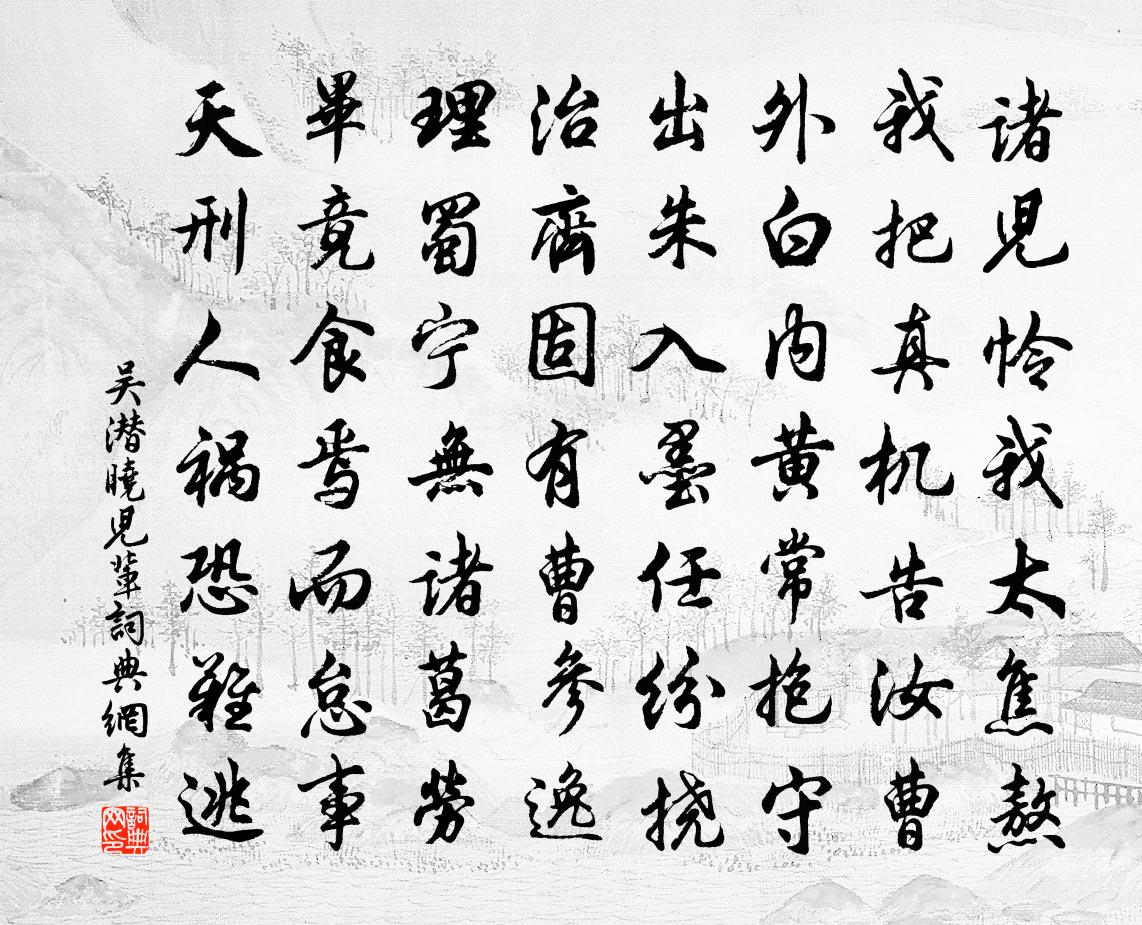 诸児怜我太焦熬
我把真机告汝曹
外白内黄常抱守
出朱入墨任纷挠
治齊固有曹參逸
理蜀宁無诸葛勞
畢竟食焉而怠事
天刑人祸恐難逃
吴潜曉児輩詞典網集
詞典网印